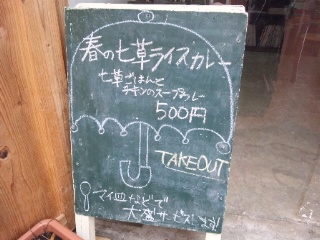 春の七草ライスカレー
七草ごはんと
チキンのスープカレー
500円
TAKEOUT
マイ皿などで
大盛サービスします!